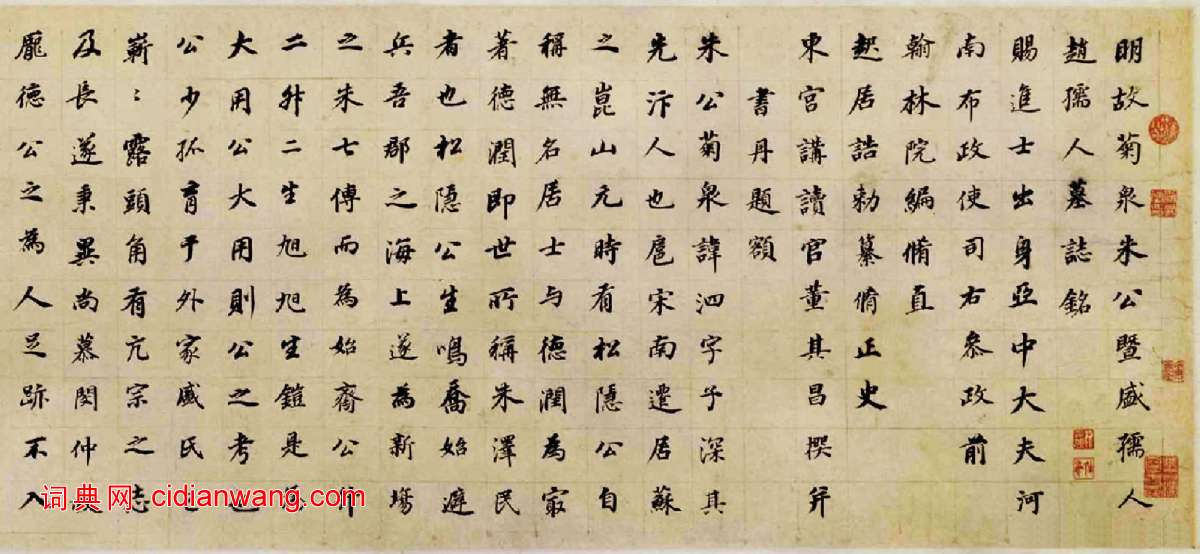 明故菊泉朱公暨盛孺人
趙孺人墓誌銘
賜進士出身亞中大夫河
南布政使司右叅政前
翰林院編脩直
起居誥勅纂脩正史
東宮講讀官董其昌撰并
書丹題額
朱公菊泉諱泗字子深其
先汴人也扈宋南遷居蘇
之崑山元時有松隱公自
稱無名居士与德潤為㝡
著德潤即世所稱朱澤民
者也松隱公生鳴喬始避
兵吾郡之海上遂為新塲
之朱七傳而為始齋公
二升二生旭旭生鎧是
大用公大用則公之考也
公少孤育于外家盛氏
嶄〻露頭角有亢宗之志
及長遂秉異尚慕閔仲
龐德公之為人足跡不入
词典网:cidianwang.com